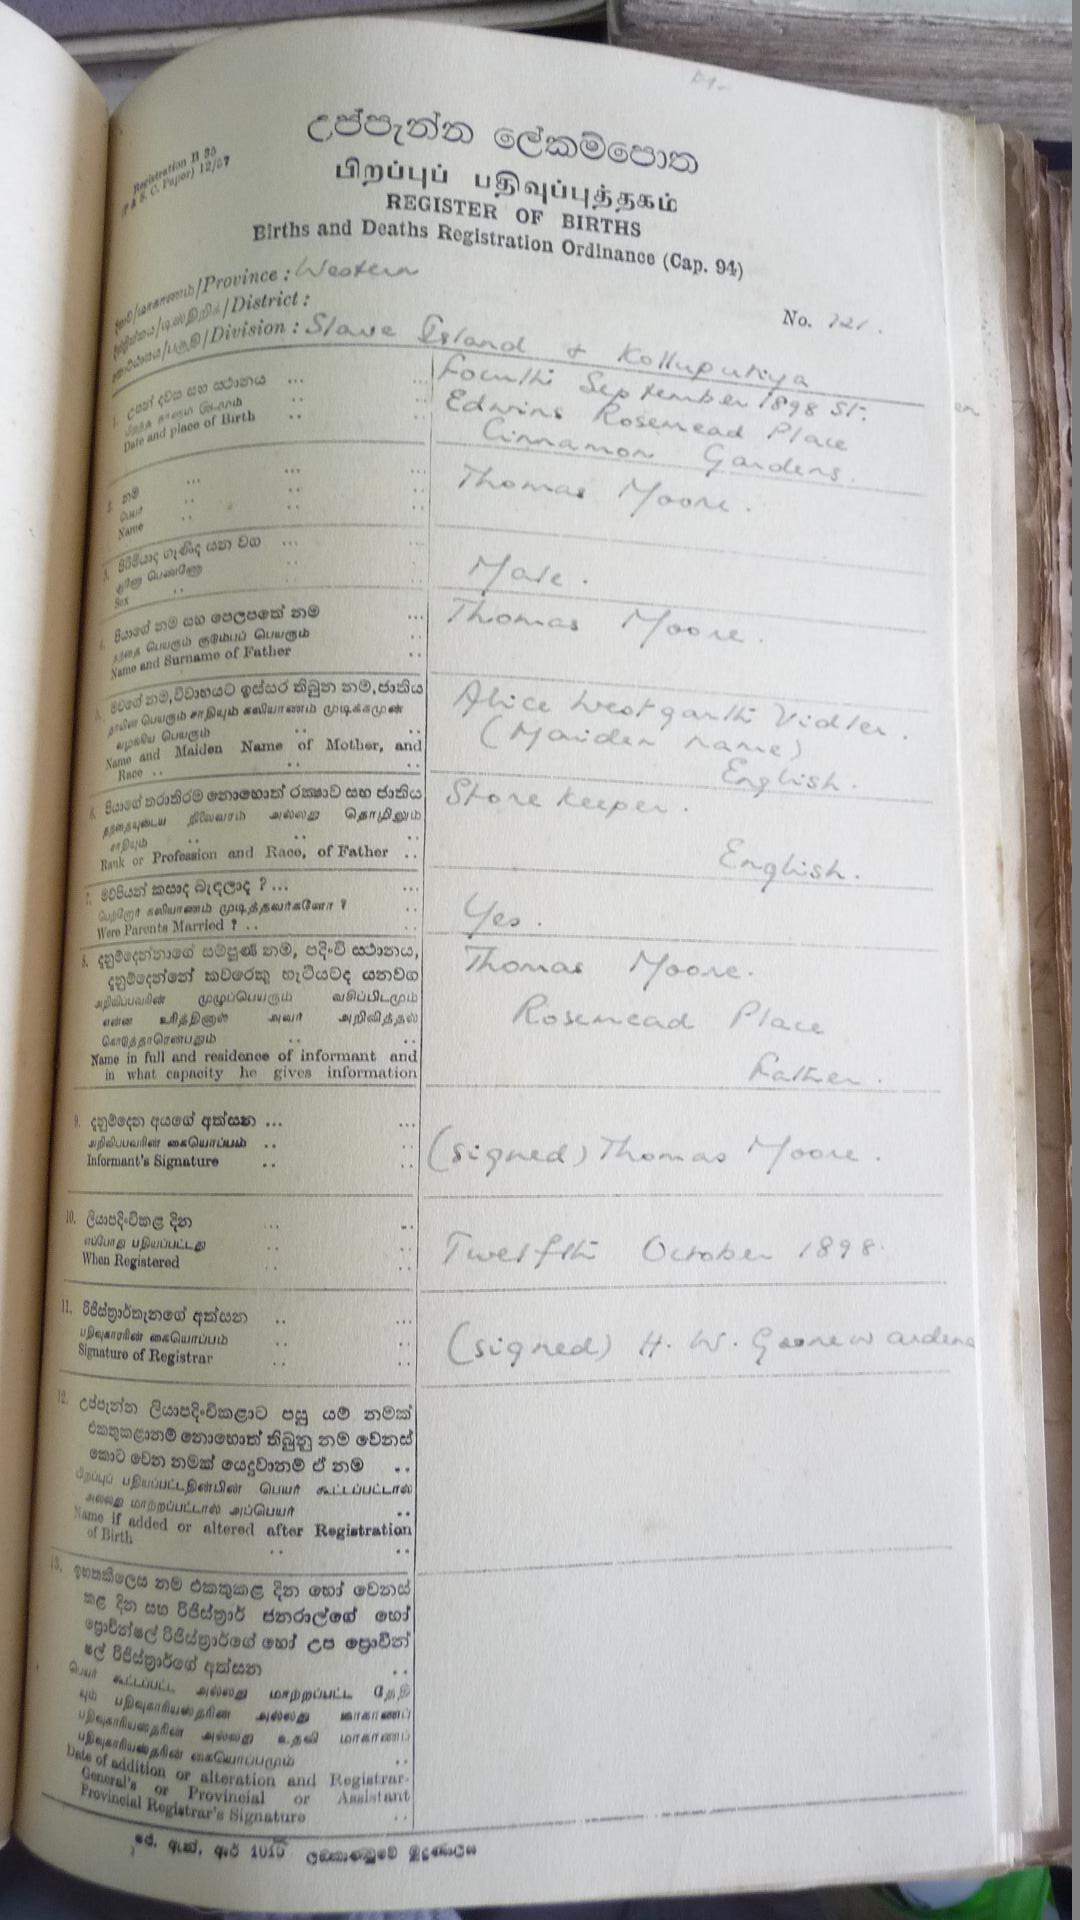 Registration B 35
(P & S. C. Paper) 12/57
උප්පැන්න ලේකම්පොත
பிறப்புப் பதிவுப்புத்தகம்
REGISTER OF BIRTHS
Births and Deaths Registration Ordinance (Cap. 94)
/Province : Western
/District :
No. 721.
/Division : Slave Island & Kollupitiya
1. උපන් දවස සහ ස්ථානය ... ...
Date and place of Birth
Fourth September 1898 St:
Edwins Rosemead Place
Cinnamon Gardens.
2. නම ... ... ...
பெயர்
Name
Thomas Moore.
3. පිරිමියාද ගැණිද යන වග ...
ஆணோ பெண்ணோ
Sex
Male.
4. පියාගේ නම සහ පෙලපතේ නම ...
Name and Surname of Father
Thomas Moore.
5. මවගේ නම, විවාහයට ඉස්සර තිබුන නම, ජාතිය
Name and Maiden Name of Mother, and
Race
Alice Westgarth Vidler.
(Maiden name)
English.
6. පියාගේ තරාතිරම නොහොත් රක්ෂාව සහ ජාතිය
Rank or Profession and Race, of Father
Store keeper.
English.
7. මව්පියන් කසාද බැඳලාද ? ... ...
பெற்றோர் கலியாணம் முடித்தவர்களோ ?
Were Parents Married ?
Yes.
8. දැනුම්දෙන්නාගේ සම්පූර්ණ නම, පදිංචි ස්ථානය,
දැනුම්දෙන්නේ කවරෙකු හැටියටද යනවග
அறிவிப்பவரின் முழுப்பெயரும் வசிப்பிடமும்
என்ன உரித்தினால் அவர் அறிவித்தல்
கொடுத்தாரென்பதும்
Name in full and residence of informant and
in what capacity he gives information
Thomas Moore.
Rosemead Place
Father.
9. දැනුම්දෙන අයගේ අත්සන ... ...
அறிவிப்பவரின் கையொப்பம்
Informant's Signature
(signed) Thomas Moore.
10. ලියාපදිංචිකළ දින ...
எப்போது பதியப்பட்டது
When Registered
Twelfth October 1898.
11. රිජිස්ත්‍රාර්තැනගේ අත්සන ...
பதிவுகாரரின் கையொப்பம்
Signature of Registrar
(signed) H. W. Goonewardene
12. උප්පැන්න ලියාපදිංචිකළාට පසු යම් නමක්
එකතුකළානම් නොහොත් තිබුනු නම වෙනස්
කොට වෙන නමක් යෙදුවානම් ඒ නම
பிறப்புப் பதியப்பட்டதின்பின் பெயர் கூட்டப்பட்டால்
அல்லது மாற்றப்பட்டால் அப்பெயர்
Name if added or altered after Registration
of Birth
13. ඉහතකීලෙස නම එකතුකළ දින හෝ වෙනස්
කළ දින සහ රිජිස්ත්‍රාර් ජනරාල්ගේ හෝ
ප්‍රොවින්ෂල් රිජිස්ත්‍රාර්ගේ හෝ උප ප්‍රොවින්
ෂල් රිජිස්ත්‍රාර්ගේ අත්සන
பெயர் கூட்டப்பட்ட அல்லது மாற்றப்பட்ட தேதி
Date of addition or alteration and Registrar-
General's or Provincial or Assistant
Provincial Registrar's Signature